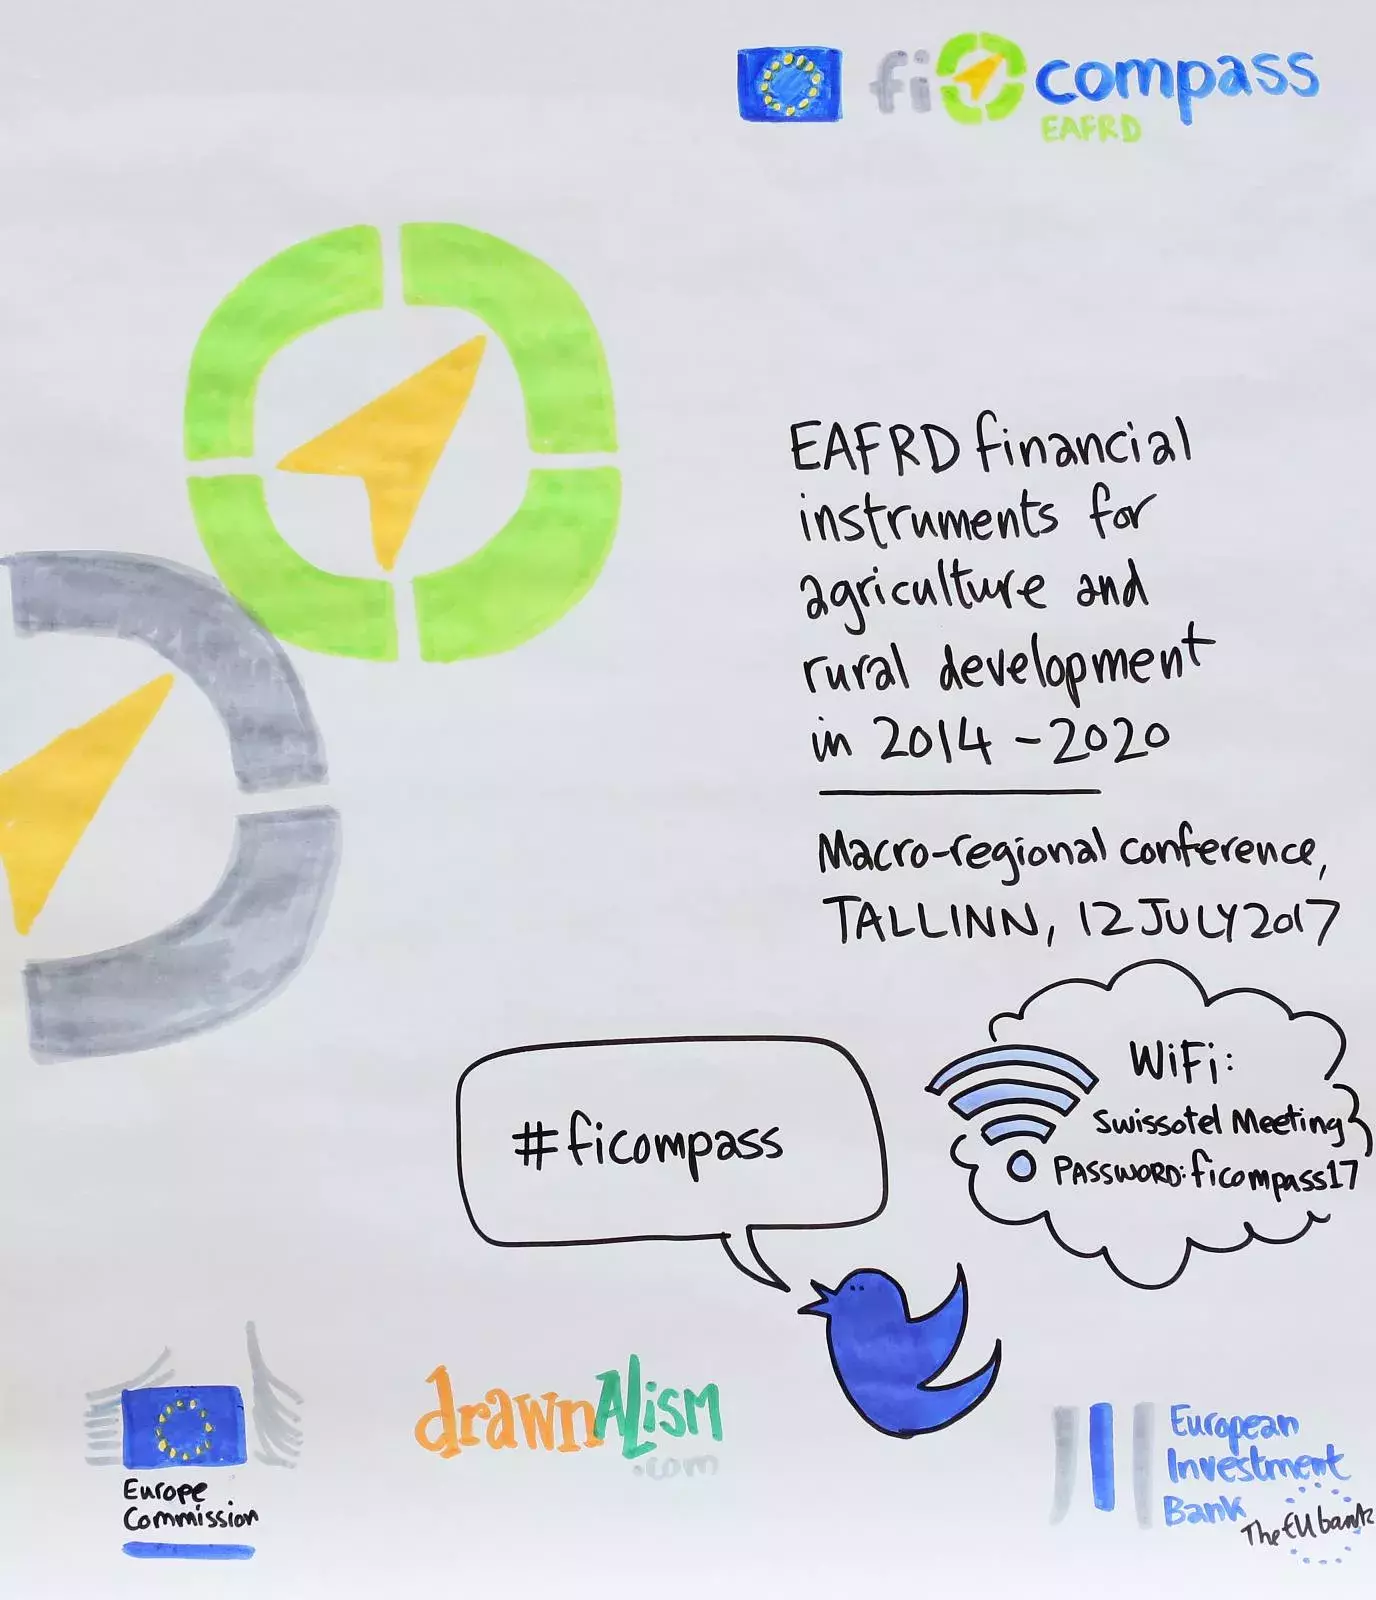 fi compass
EAFRD
EAFRD financial
instruments for
agriculture and
rural development
in 2014 - 2020
Macro-regional conference,
TALLINN, 12 JULY 2017
WiFi:
Swissotel Meeting
PASSWORD: ficompass17
#ficompass
Europe
Commission
drawnALism
.com
European
Investment
Bank
The EU bank